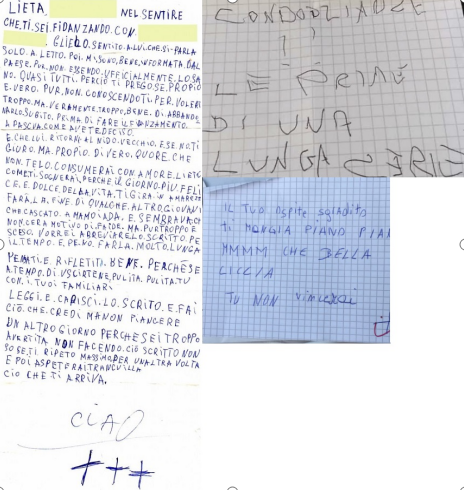 LIETA. NEL SENTIRE
CHE.TI.SEI.FIDANZANDO.CON
GLIELO.SENTITO.A.LUI.CHE.SI.PARLA
SOLO.A.LETTO.POI.MI.SONO.BENE.INFORMATA.DAL
PAESE.PUR.NON.ESSENDO.UFFICIALMENTE.LO.SA
NO.QUASI.TUTTI.PERCIÒ TI PREGO.SE.PROPIO
E.VERO.PUR.NON.CONOSCENDOTI.PER.VOLER
TROPPO.MA.VERAMENTE.TROPPO.BENE.DI.ABBANDO
NARLO.SUBITO.PRIMA.DI FARE IL FIDANZAMENTO.
A PASCUA.COME.AVETE.DECISO.
E.CHE.LUI.RITORNI.AL NIDO.VECCHIO.E.SE.NO.TI
GIURO.MA.PROPIO.DI.VERO.QUORE.CHE
NON.TELO.CONSUMERAI.CON.AMORE.LIETO
COME.TI.SOGNERAI.PERCHE.IL GIORNO.PIU.FELI
CE.E.DOLCE.DELLA.VITA.TI.GIRA.IN AMAREZZA
FARA.LA.FINE.DI QUALCHE.ALTRO.GIOVANI
CHE CASCATO.A MAMOIADA.E.SEMBRAVA.CH
NON.CERA MOTIVO.DI.FARDE.MA.PURTROPPO.E
SCESO.VORREI ABREVIARE.LO.SCRITTO.PE
IL TEMPO.E.PENO.FARLA.MOLTO.LUNGA
PENTATI.E RIFLETITI.BENE.PERCHE SE
A.TEMPO.DI.USCIRTENE.PULITA.PULITA.TU
CON.I.TUOI FAMILIARI
LEGGI.E.CAPISCI.LO.SCRITO.E.FAI
CIÒ.CHE.CREDI MA NON PIANGERE
UN ALTRO GIORNO PERCHE SEI TROPPO
AVERTITA NON FACENDO.CIÒ SCRITTO NON
TI RIPETO MASSIMO PER UN ALTRA VOLTA
E POI ASPETO RAI TRANCUILLA
CIO CHE TI ARRIVA.
CIAO
+++
CONDOGLIANZE
! !
LE PRIME
DI UNA
LUNGA SERIE
IL TUO OSPITE SGRADITO
TI MANGIA PIANO PIAN
MMMM CHE BELLA
CICCIA
TU NON VINCERAI